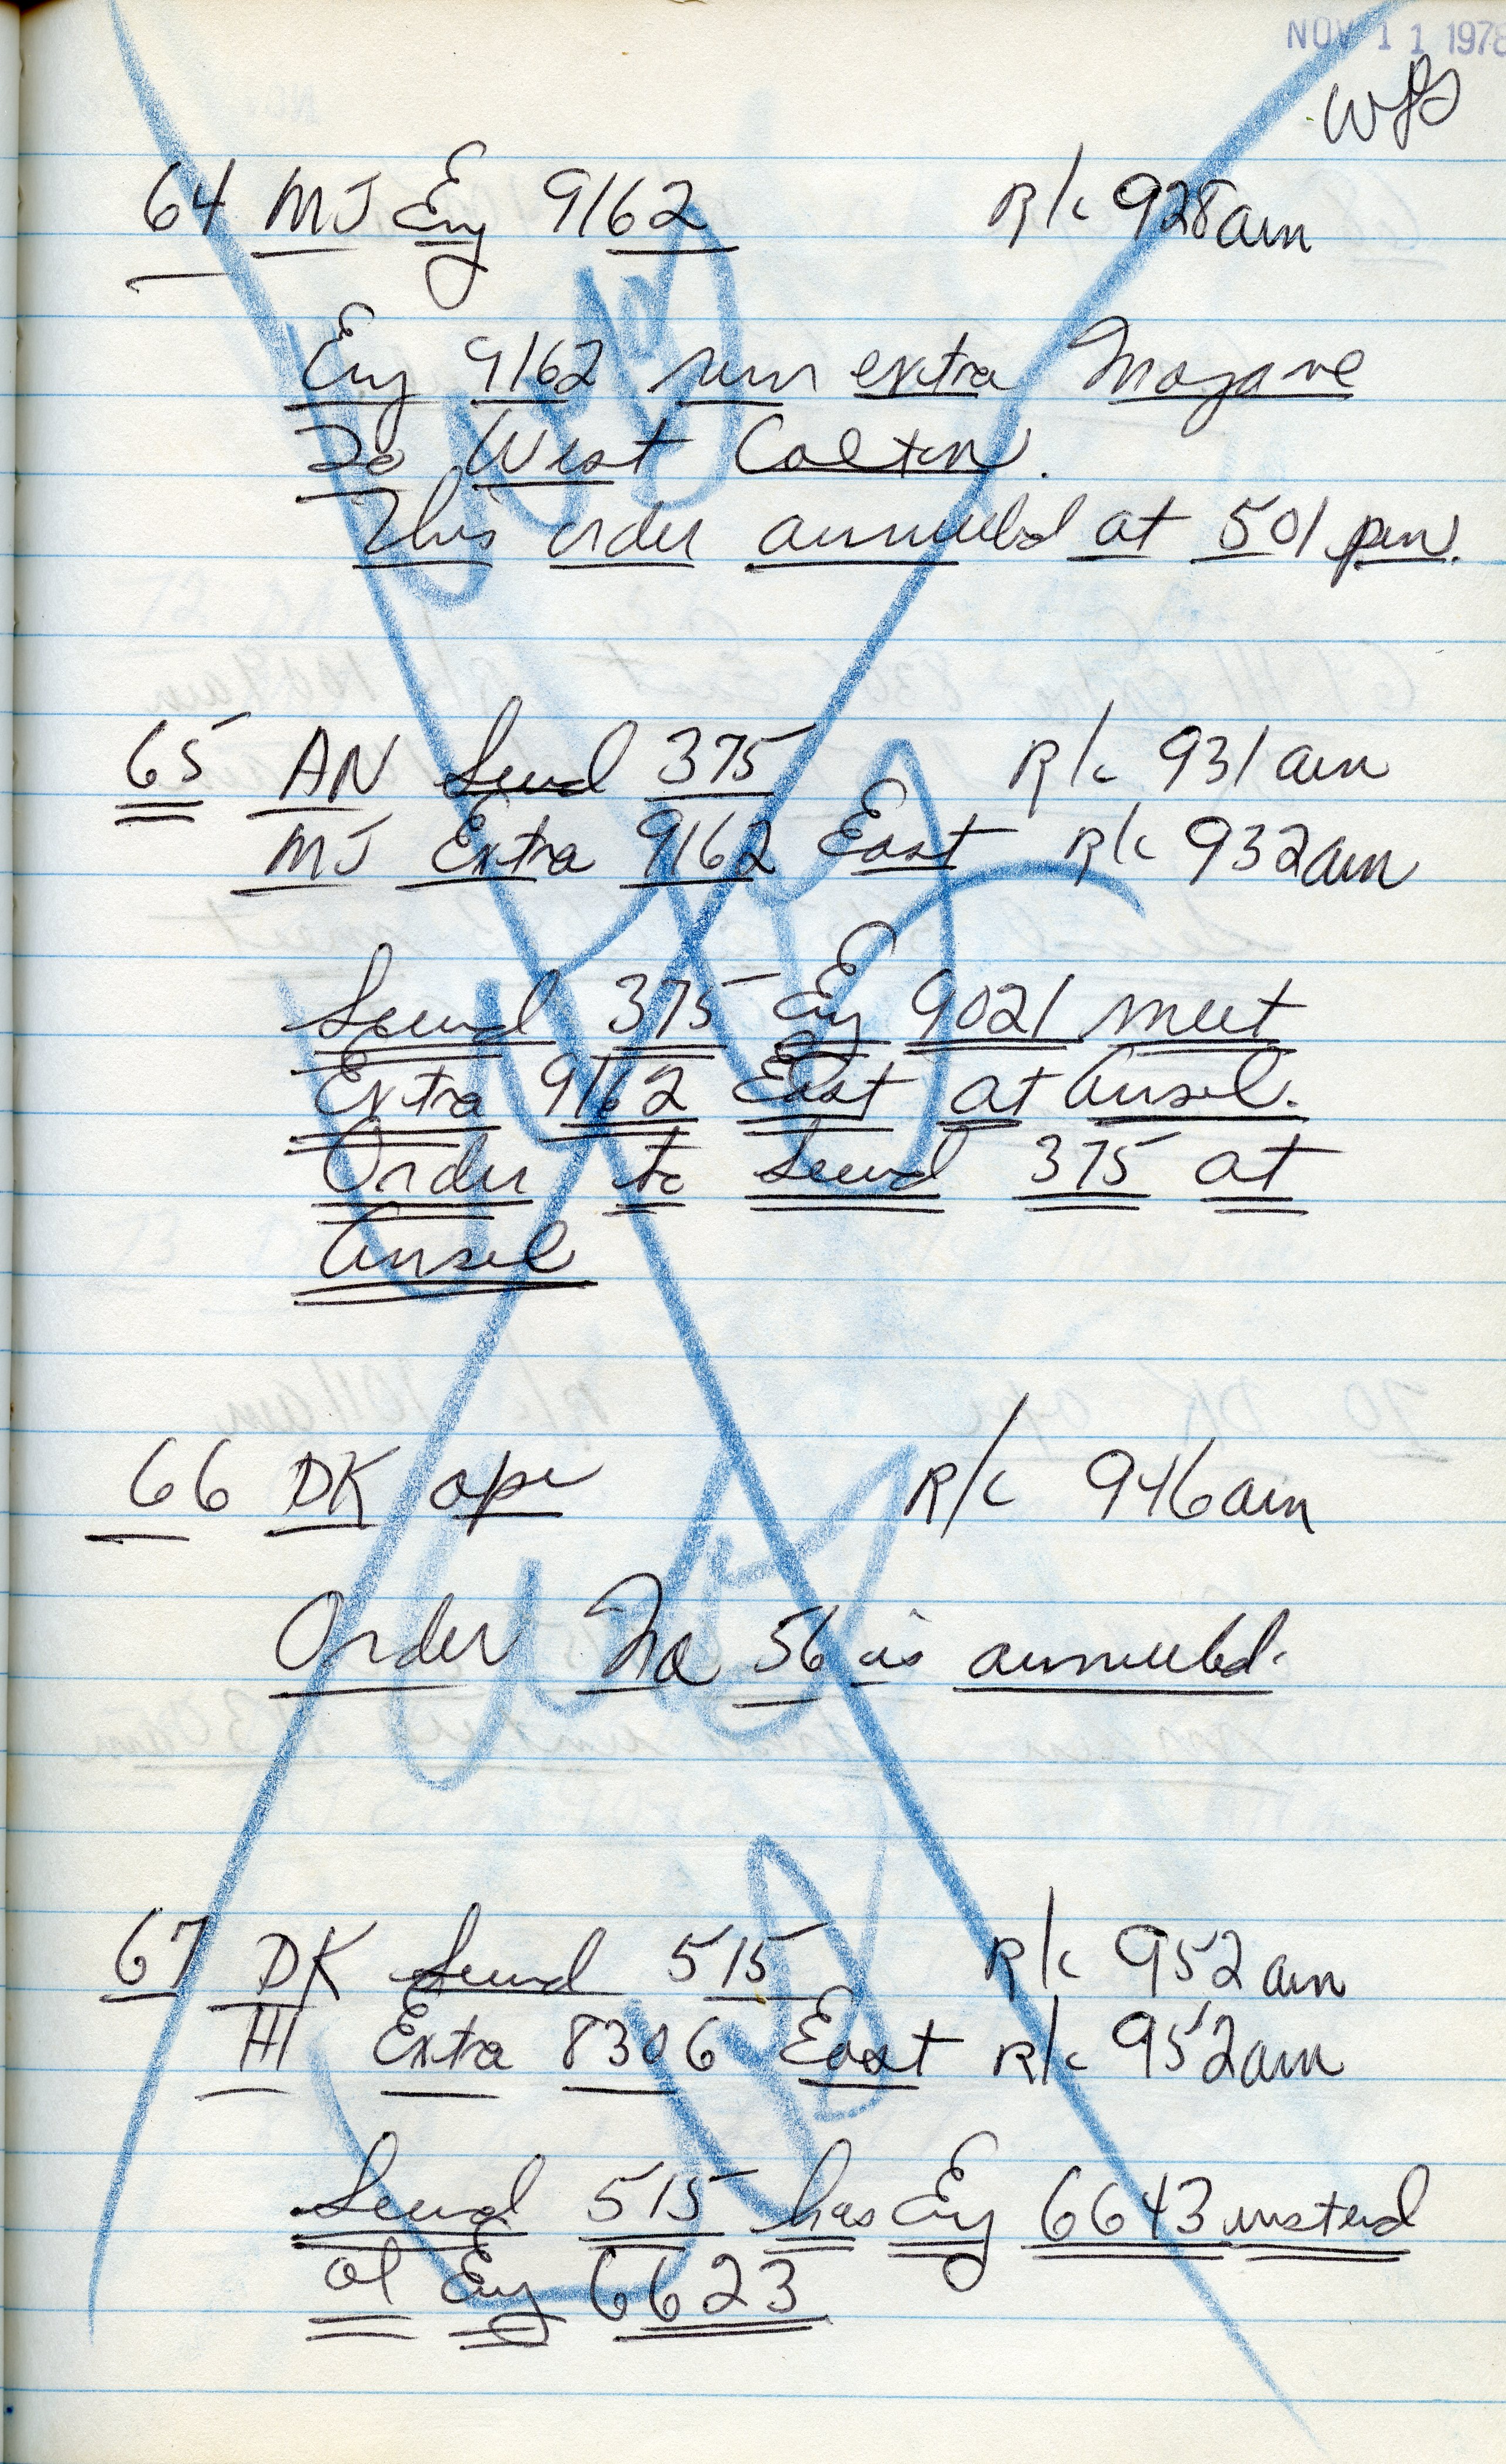 NOV 11 1978
WJS
64 MJ Eng 9162 R/c 928am
Eng 9162 run extra Mojave
To West Colton.
This order annulled at 501 pm.
65 AN Second 375 R/c 931am
MJ Extra 9162 East R/c 932am
Second 375 Eng 9021 meet
Extra 9162 East at Ansel.
Order to Second 375 at
Ansel
66 DK opr R/c 946am
Order No 56 is annulled.
67 DK Second 515 R/c 952am
HI Extra 8306 East R/c 952am
Second 515 has Eng 6643 instead
of Eng 6623